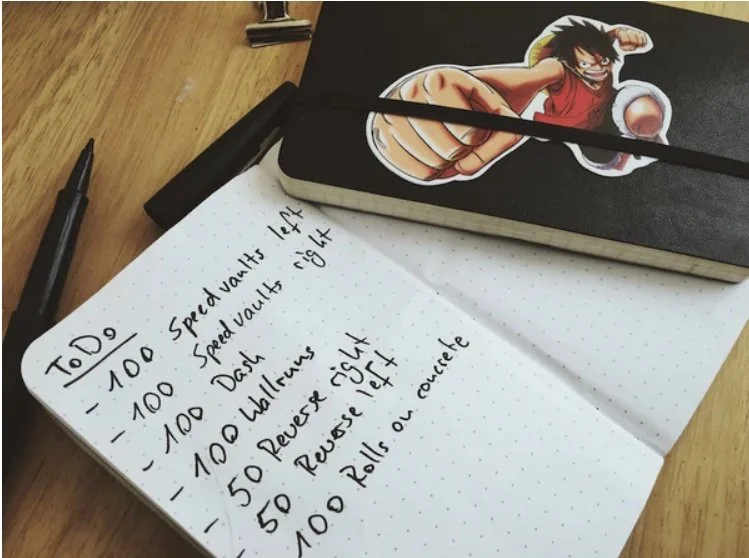 ToDo
- 100 Speedvaults left
- 100 Speedvaults right
- 100 Dash
- 100 Wallruns
- 50 Reverse right
- 50 Reverse left
- 100 Rolls on concrete